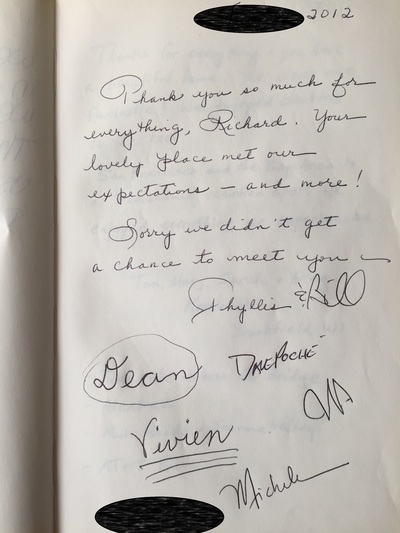 2012
Thank you so much for
everything, Richard. Your
lovely place met our
expectations – and more!
Sorry we didn't get
a chance to meet you –
Phyllis & Bill
Dean
Dale Poché
Vivien
Michele